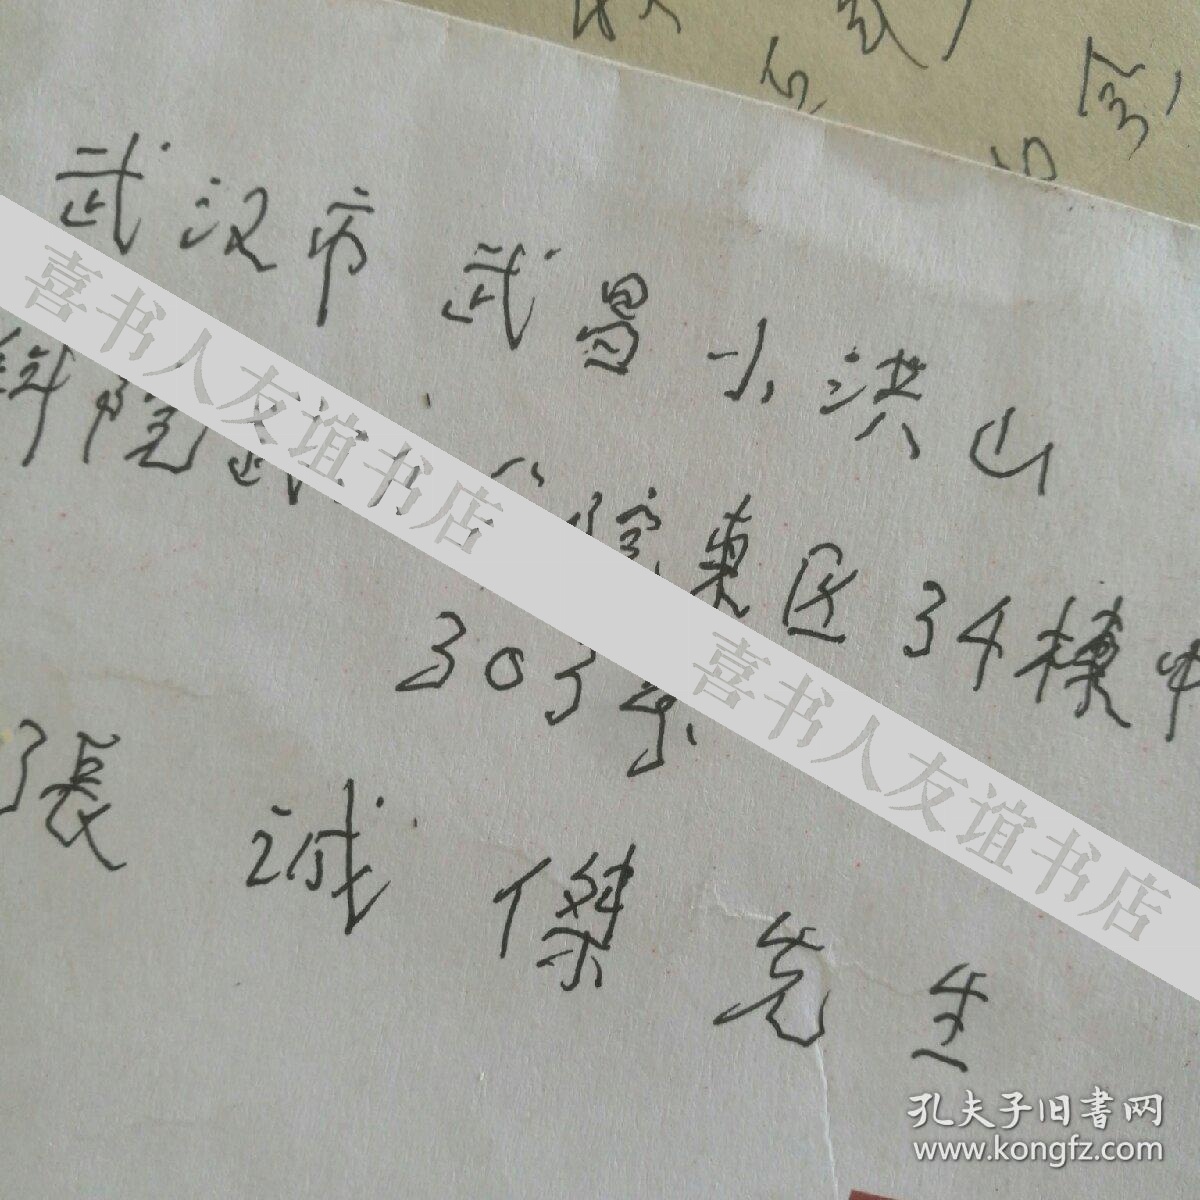 武汉市武昌小洪山
科院武 分院東区34棟中
303号
張诚傑先生
喜书人友谊书店
喜书人友谊书店
孔夫子旧書网
www.kongfz.com